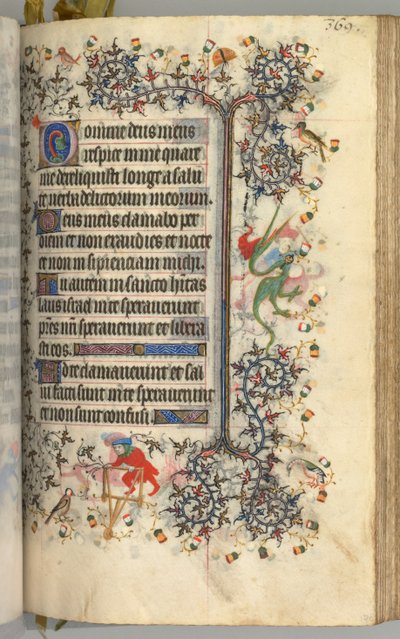 369.
Domine deus meus
respice in me quare
me dereliquisti longe a salu
te verba delictorum meorum.
Deus meus clamabo per
diem et non exaudies et nocte
et non in sipienciam michi.
Tu autem in sancto hitas
laus israel in te speraverunt
pres nri speraverunt et libera
sti eos.
Ad te clamaverunt et sal
vi facti sunt in te speraverunt
et non sunt confusi.